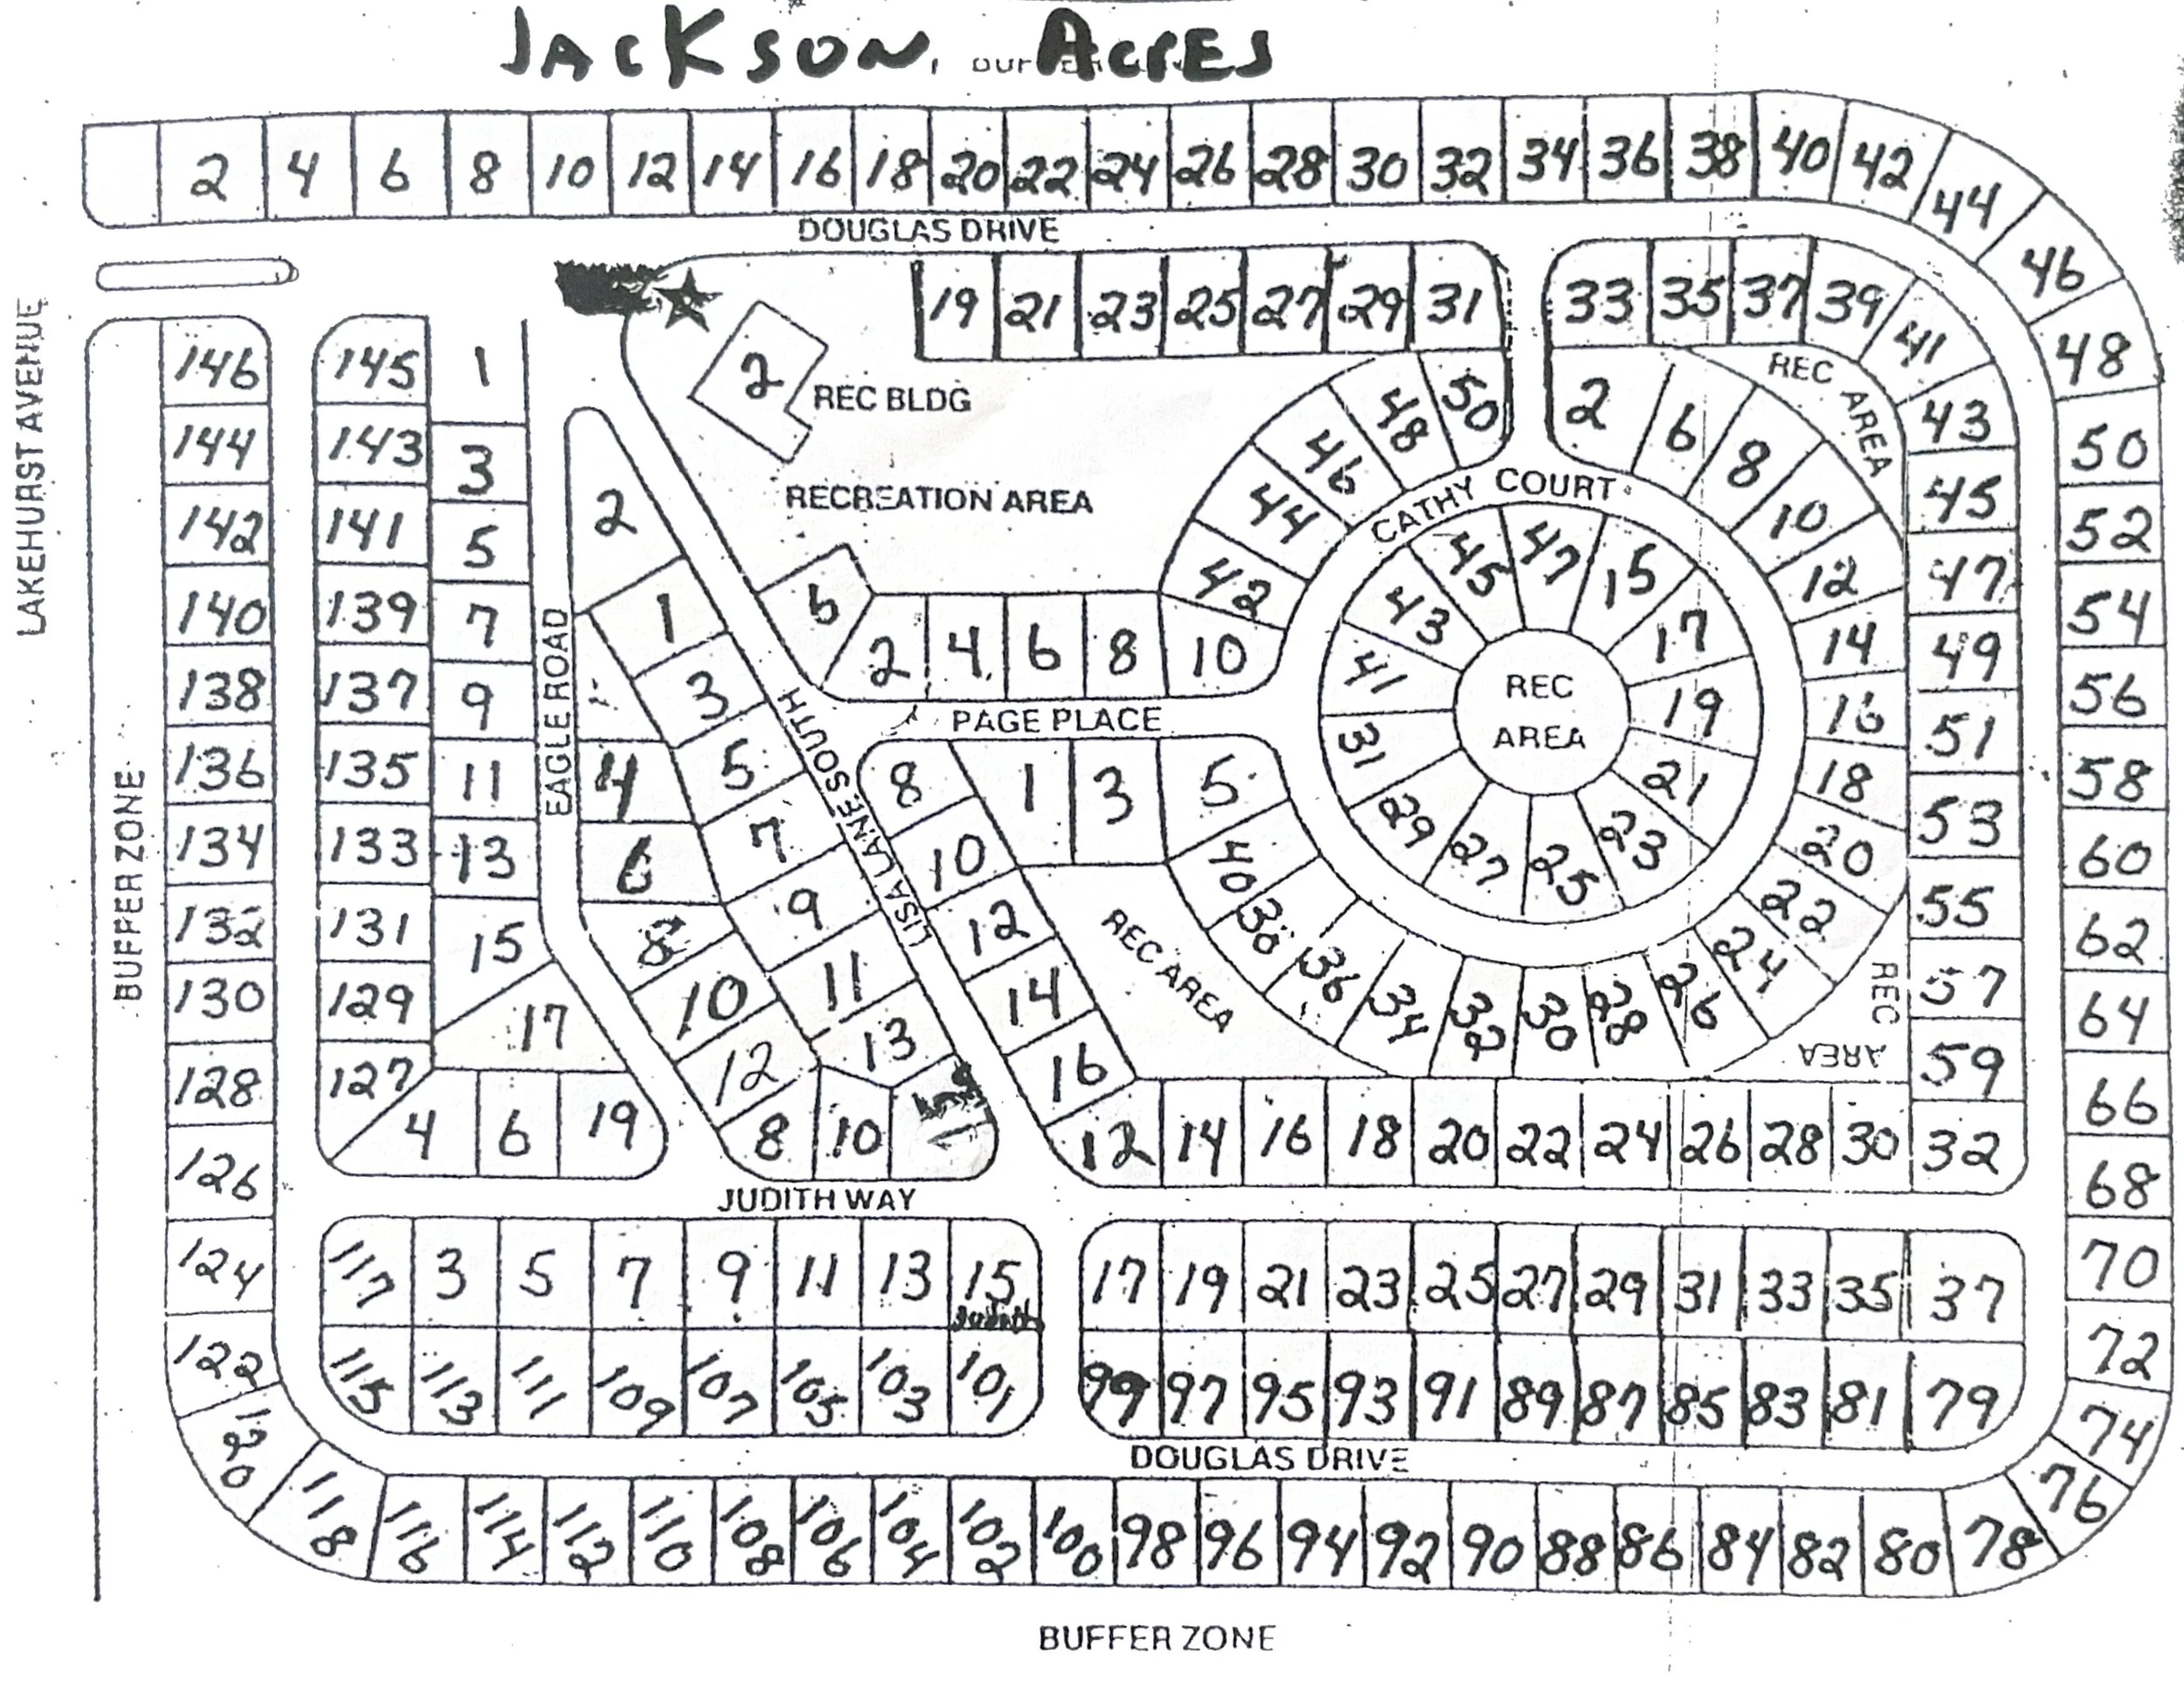 JACKSON ACRES
2 4 6 8 10 12 14 16 18 20 22 24 26 28 30 32 34 36 38 40 42 44 46 48 50 52 54 56 58 60 62 64 66 68 70 72 74 76 78
DOUGLAS DRIVE
LAKEHURST AVENUE
BUFFER ZONE
146 144 142 140 138 136 134 132 130 128 126 124 122 120 118
145 143 141 139 137 135 133 131 129 127
1 3 5 7 9 11 13 15 17
4 6 19
EAGLE ROAD
2 4 6 8 10 12
1 3 5 7 9 11 13 15
8 10
LISA LANE SOUTH
2
REC BLDG
RECREATION AREA
6
2 4 6 8 10
PAGE PLACE
1 3 5
8 10 12 14 16
REC AREA
19 21 23 25 27 29 31
33 35 37 39 41 43 45 47 49 51 53 55 57 59
REC AREA
CATHY COURT
42 44 46 48 50
2 6 8 10 12 14 16 18 20 22 24 26 28 30 32 34 36 38 40
45 47 15 17 19 21 23 25 27 29 31 41 43
REC
AREA
REC AREA
12 14 16 18 20 22 24 26 28 30 32
JUDITH WAY
117 3 5 7 9 11 13 15
17 19 21 23 25 27 29 31 33 35 37
115 113 111 109 107 105 103 101
99 97 95 93 91 89 87 85 83 81 79
DOUGLAS DRIVE
116 114 112 110 108 106 104 102 100 98 96 94 92 90 88 86 84 82 80
BUFFER ZONE